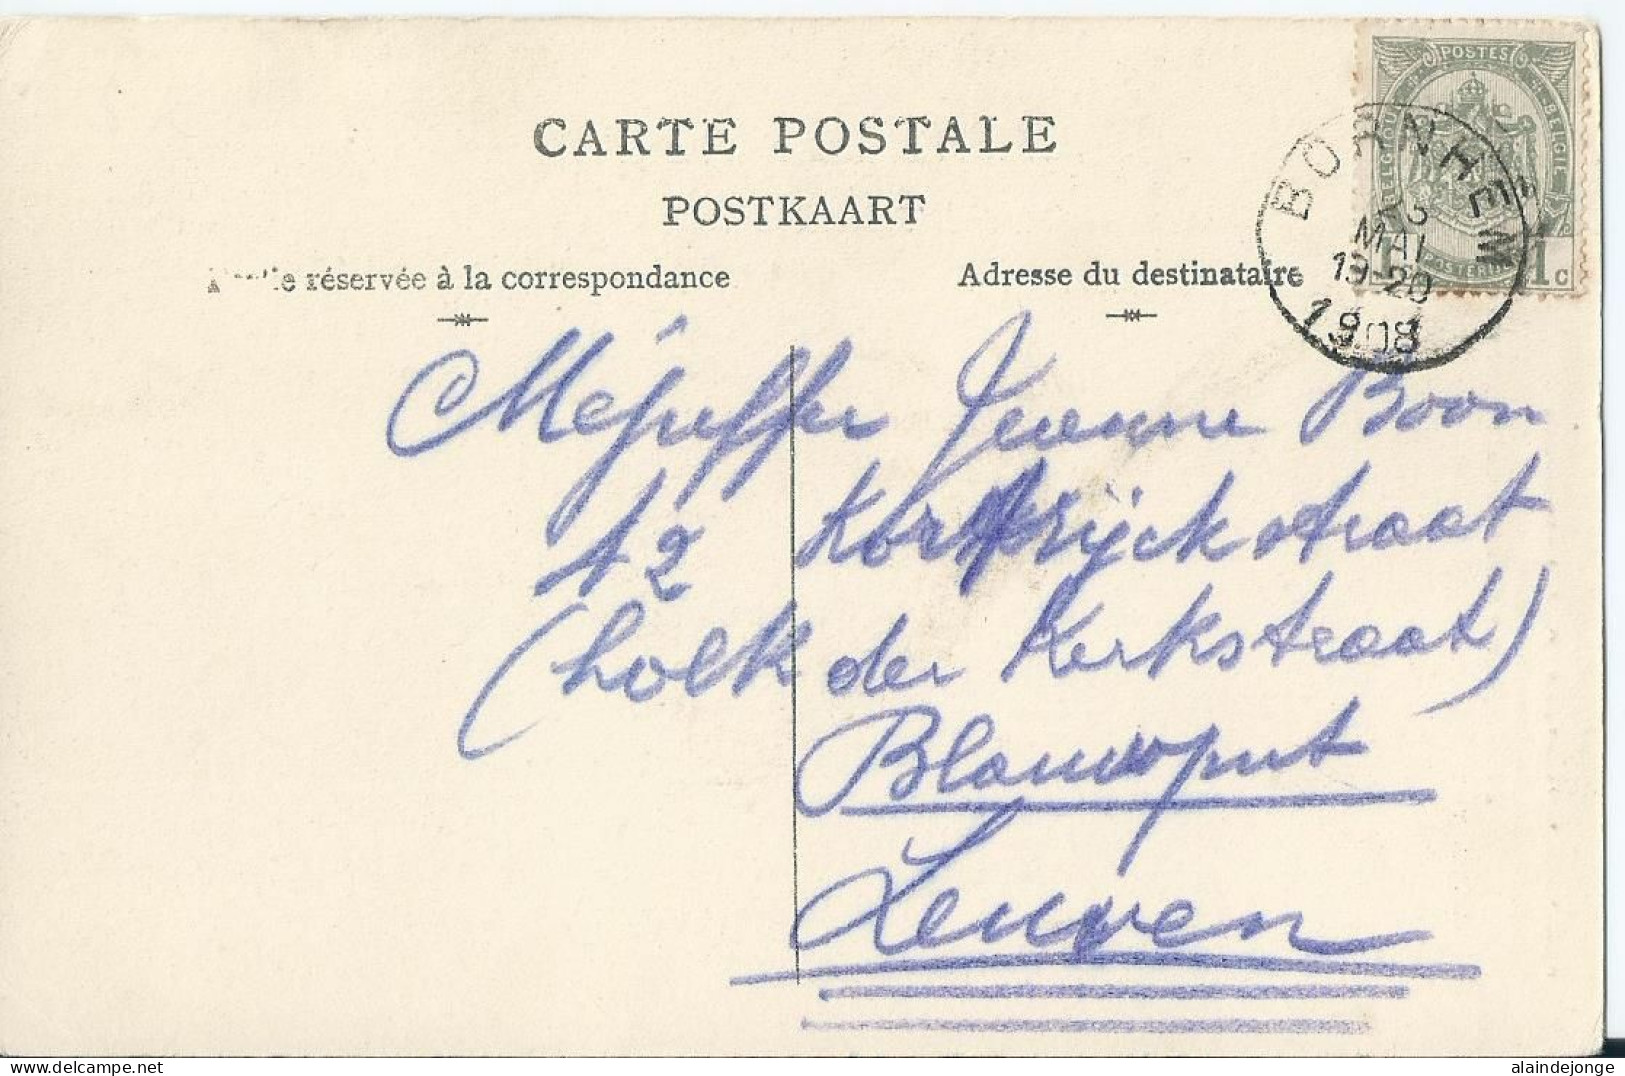 POSTES
BELGIQUE
BELGIË
POSTERIJEN
1 1c
CARTE POSTALE
POSTKAART
BORNHEM
3
MAI
19-20
1908
réservée à la correspondance
Adresse du destinataire
Mejuffer Jeanne Boon
12 Kortrijckstraat
(hoek der Kerkstraat)
Blauwput
Leuven
alaindejonge